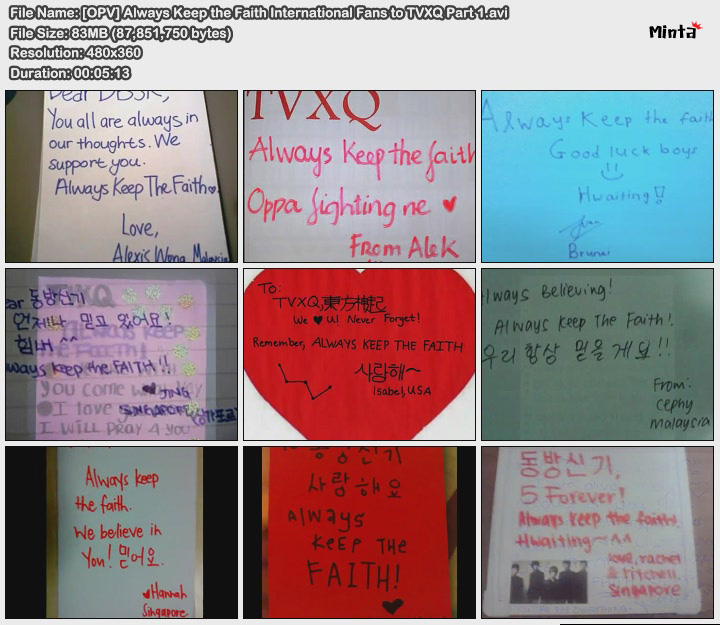 File Name: [OPV] Always Keep the Faith International Fans to TVXQ Part 1.avi
File Size: 83MB (87,851,750 bytes)
Resolution: 480x360
Duration: 00:05:13
Minta
Dear DBSK,
You all are always in
our thoughts. We
support you.
Always Keep The Faith
Love,
Alexis Wong Malaysia
TVXQ
Always Keep the faith
Oppa fighting ne ♥
From Alek
Always Keep the faith
Good luck boys
Hwaiting!!
Brunei
동방신기
언제나 믿고 있어요!
힘내 ^^
ways keep the FAITH!!
You come
JING
I love
SINGAPORE (싱가포르)
I WILL PRAY 4 YOU
To:
TVXQ, 東方神起
We ♥ U! Never Forget!
Remember, ALWAYS KEEP THE FAITH
사랑해~
Isabel, USA
lways Believing!
Always Keep The Faith!
우리 항상 믿을게요!!
From:
Cephy
Malaysia
Always keep
the faith.
We believe in
You! 믿어요.
♥Hannah
Singapore
동방신기
사랑해요
Always
KEEP THE
FAITH!
동방신기,
5 Forever!
Always Keep the faith!
Hwaiting~^^
love, rachel
& ritchell.
Singapore